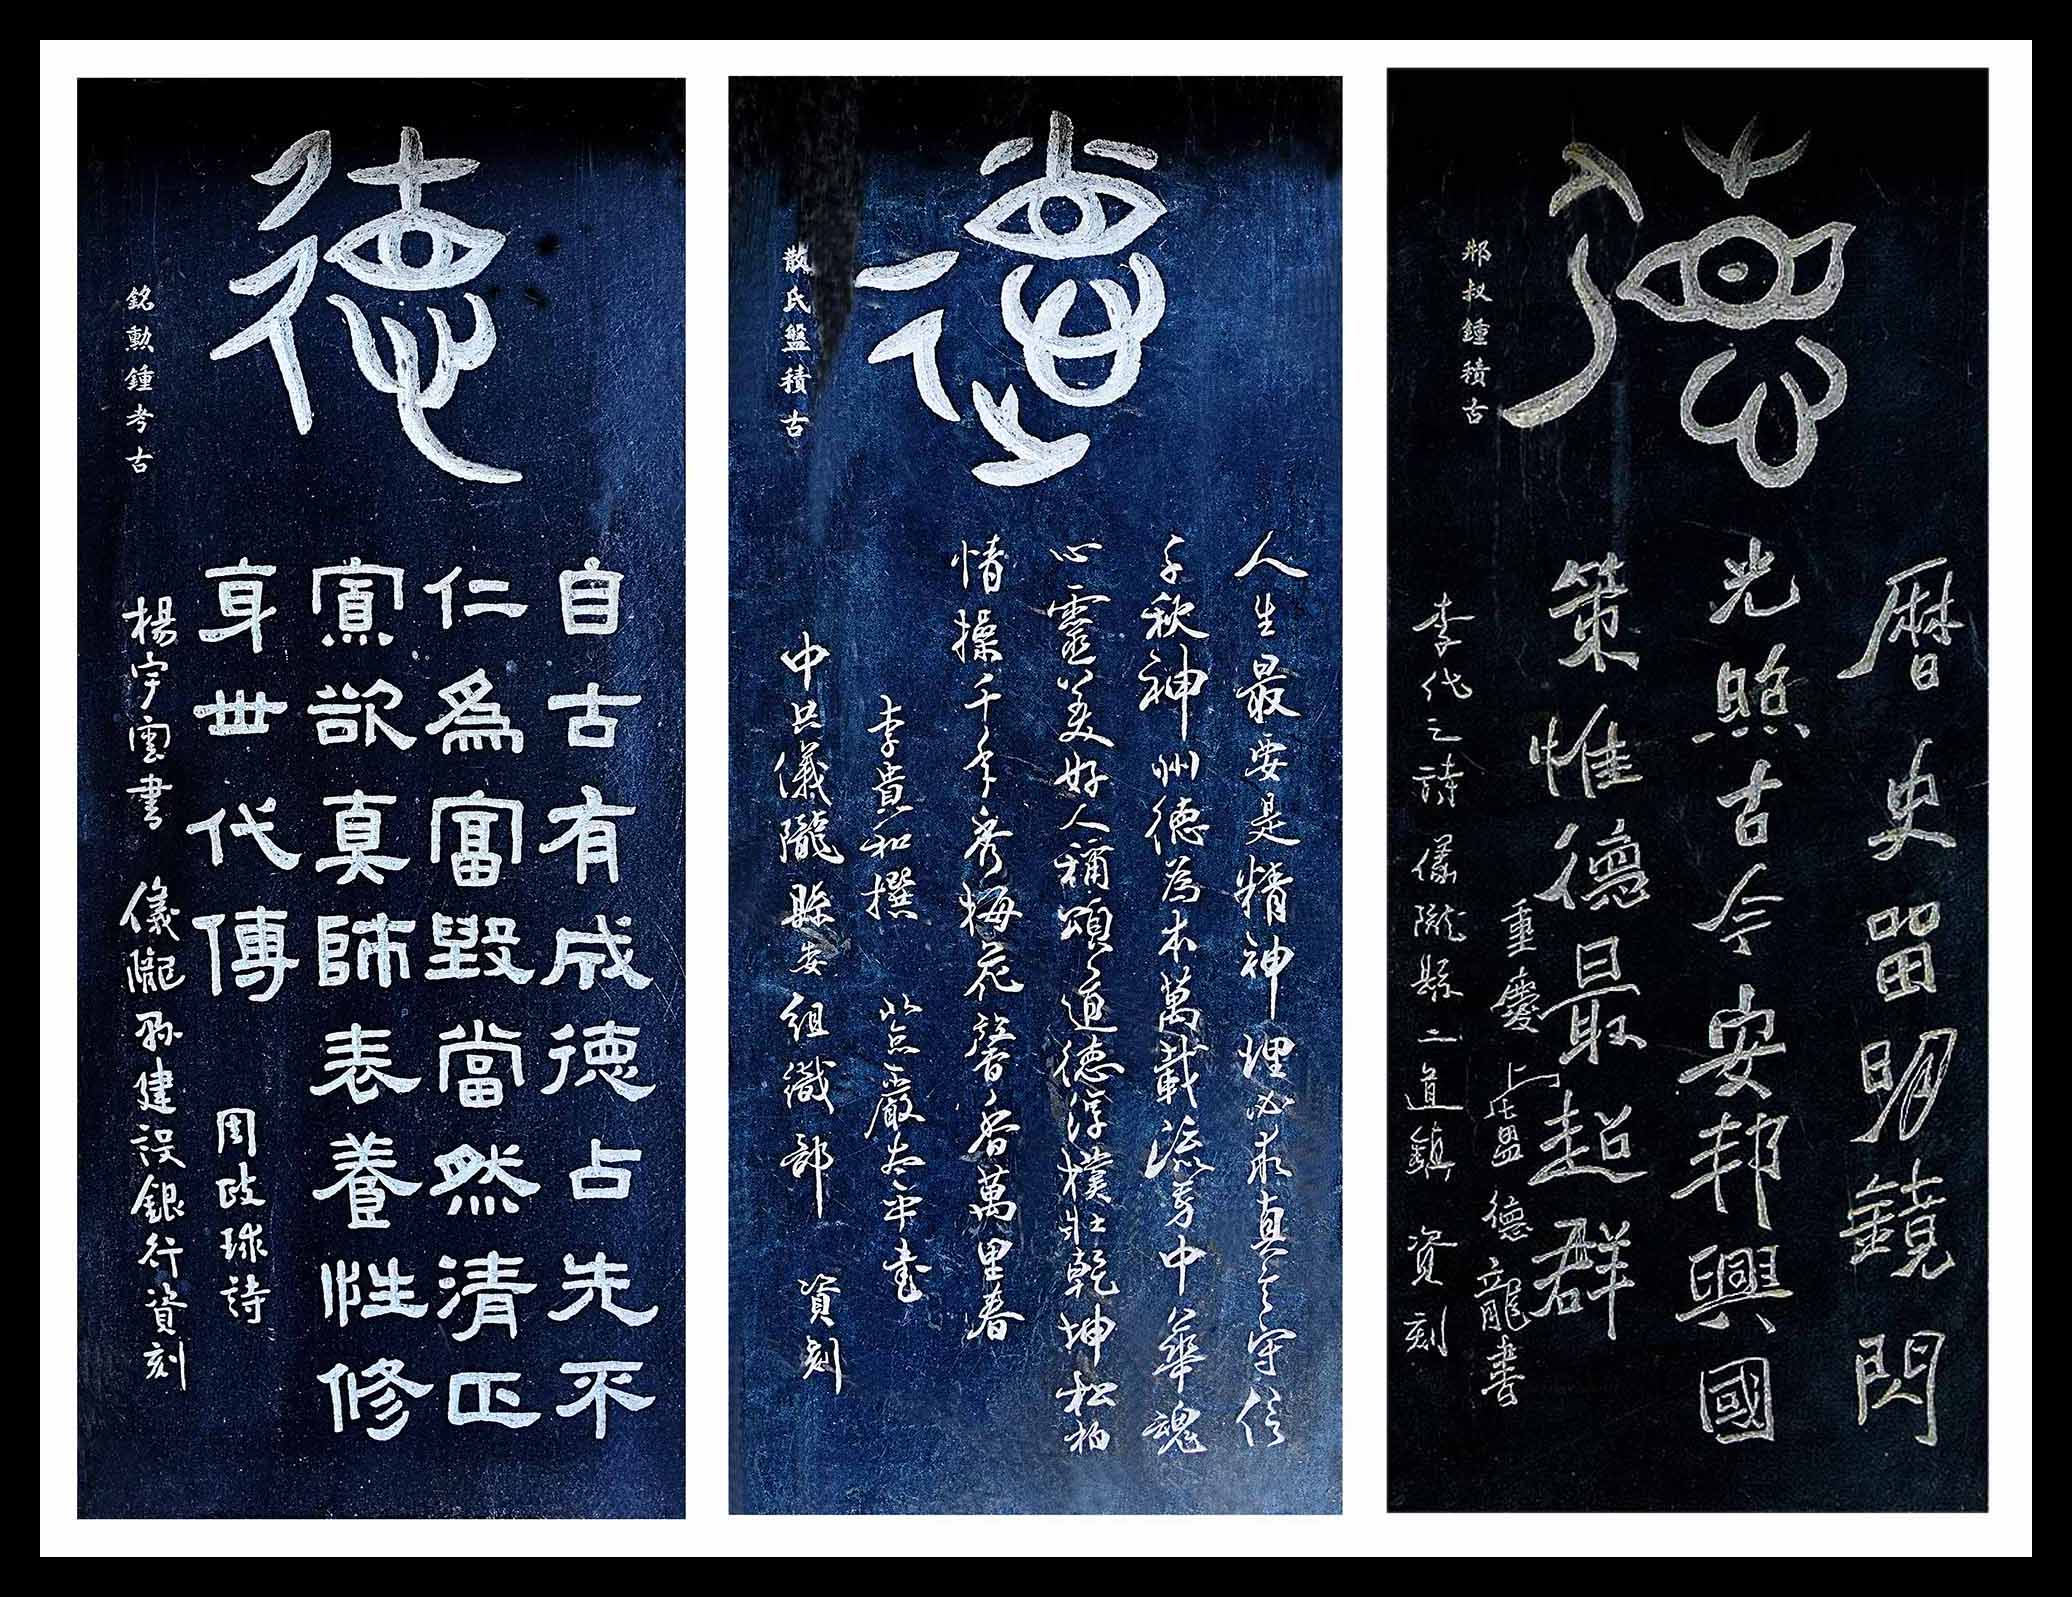 德
銘勳鐘考古
自古有成德占先不
仁為富毀當然清正
寡欲真師表養性修
身世代傳
周政球詩
楊宇雲書 儀隴縣建設銀行資刻
德
散氏盤積古
人生最要是精神埋必求真言守信
千秋神州德為本萬載流芳中華魂
心靈美好人稱頌道德淳樸壯乾坤松柏
情操千年秀梅花馨香萬里春
李貴和撰 嚴太平書
中共儀隴縣委組織部 資刻
德
邢叔鐘積古
曆史留明鏡閃
光照古今安邦興國
策惟德最超群
重慶 德龍書
李代之詩 儀隴縣二道鎮 資刻